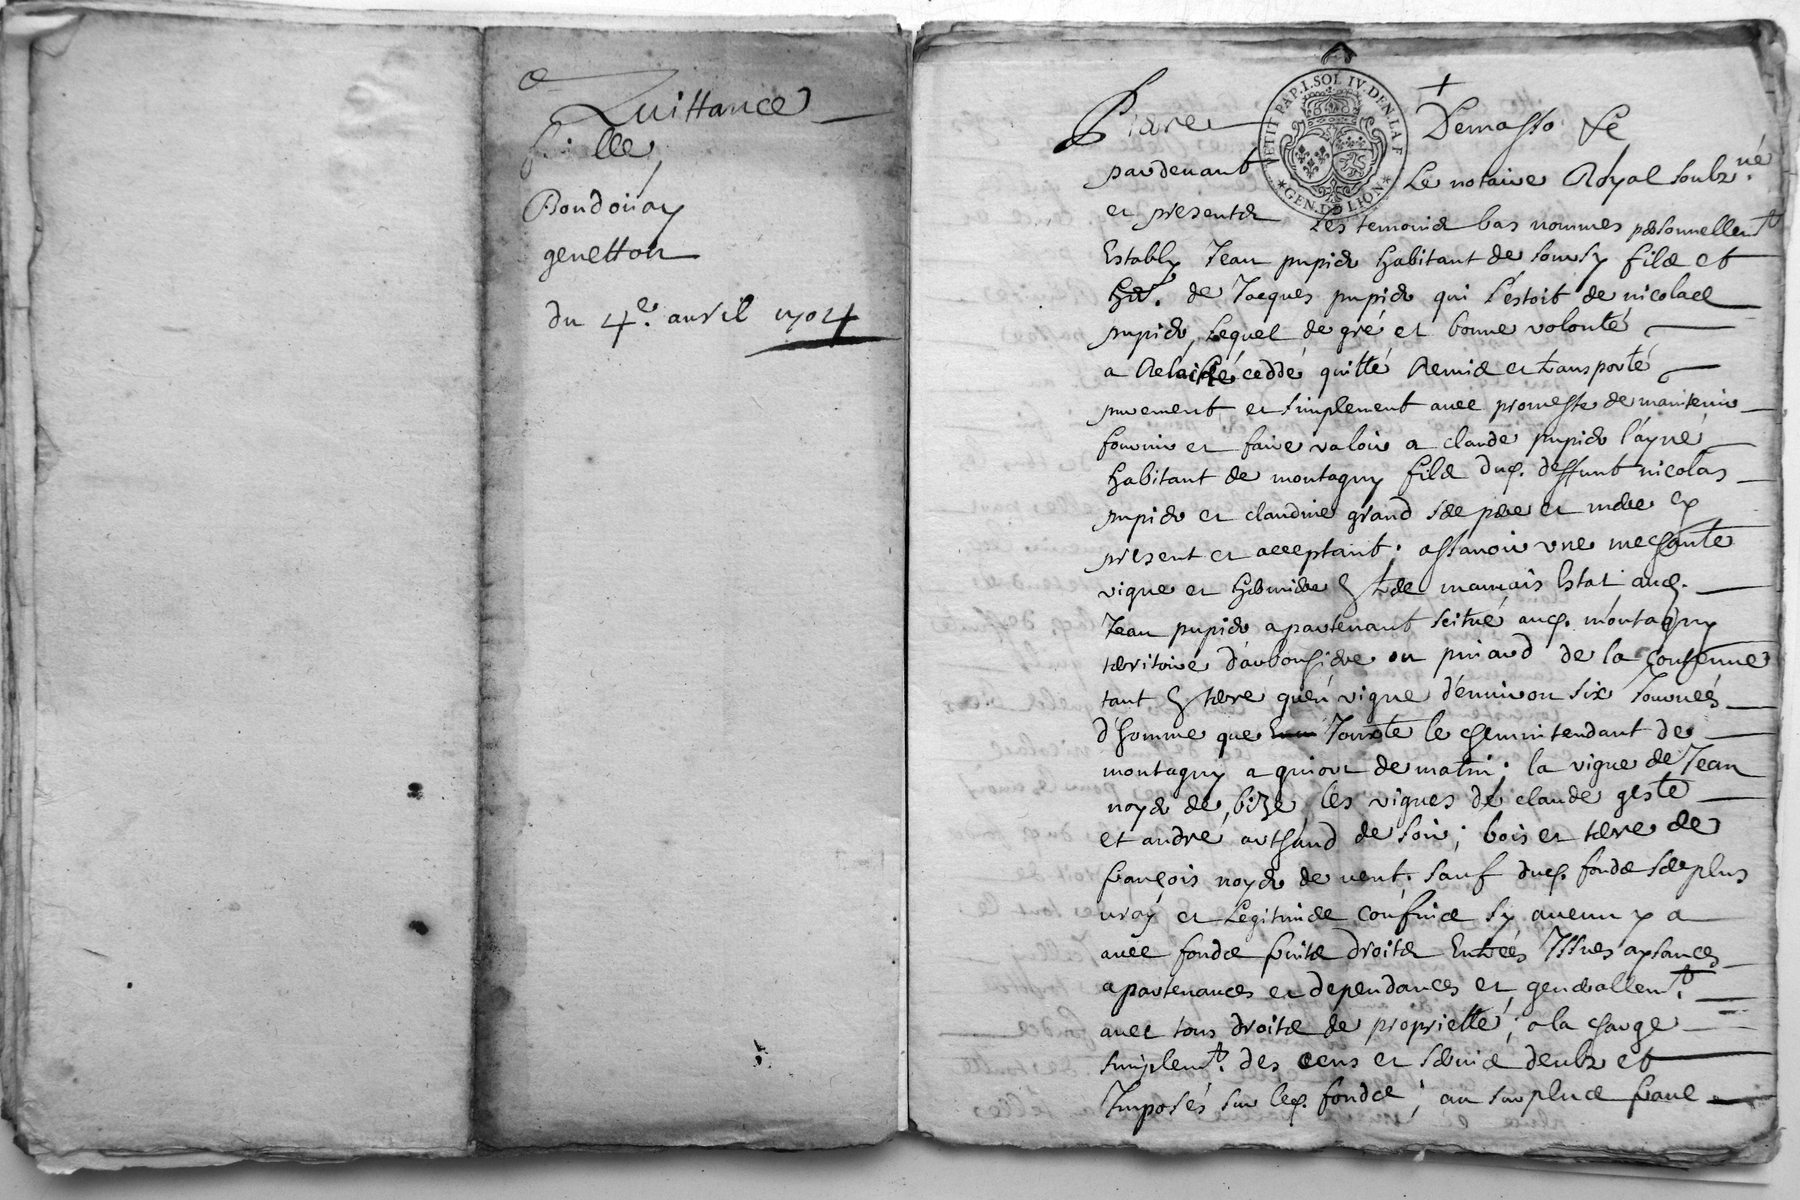 Quittance
fille
Bondonay
genetton
du 4e. avril 1704
PETIT PAP. 1. SOL IV. DEN. LA F
GEN. DE LION
Pierre Demasso Se
pardevant Le notaire Royal soubz. né
et presentz Les temoinz bas nommes personnellemt
Estably Jean pupier habitant de Soursy filz et
her. de Jacques pupier qui l'estoit de nicolas
pupier, Lequel de gré et bonne volonté
a Relaché ceddé quitté Remis et transporté
purement et simplement avec promesse de maintenir
fournir et faire valoir a claude pupier l'ayné
habitant de montagny filz dud. deffunt nicolas
pupier et claudine grand ses pere et mere cy
present et acceptant. assavoir une mechante
vigne et hermiere En tres mauvais Estat aud.
Jean pupier apartenant scitué aud. montagny
territoire d'arbonsiere ou pinard de la contenue
tant En terre qu'en vigne d'environ six Journées
d'homme que Jouxte le chemin tendant de
montagny a givort de matin; la vigne de Jean
noyer de bize les vignes de claude geste
et andre arthaud de soir; bois et terre de
françois noyer de vent. sauf dud. fondz ses plus
vray et Legitimes confins sy aucun y a
avec fondz fruitz droitz Entrées Issues aysances
apartenances et dependances et generallemt.
avec tous droitz de proprietté; a la charge
simplemt. des cens et servis deubz et
Imposés sur led. fondz; au surplus franc